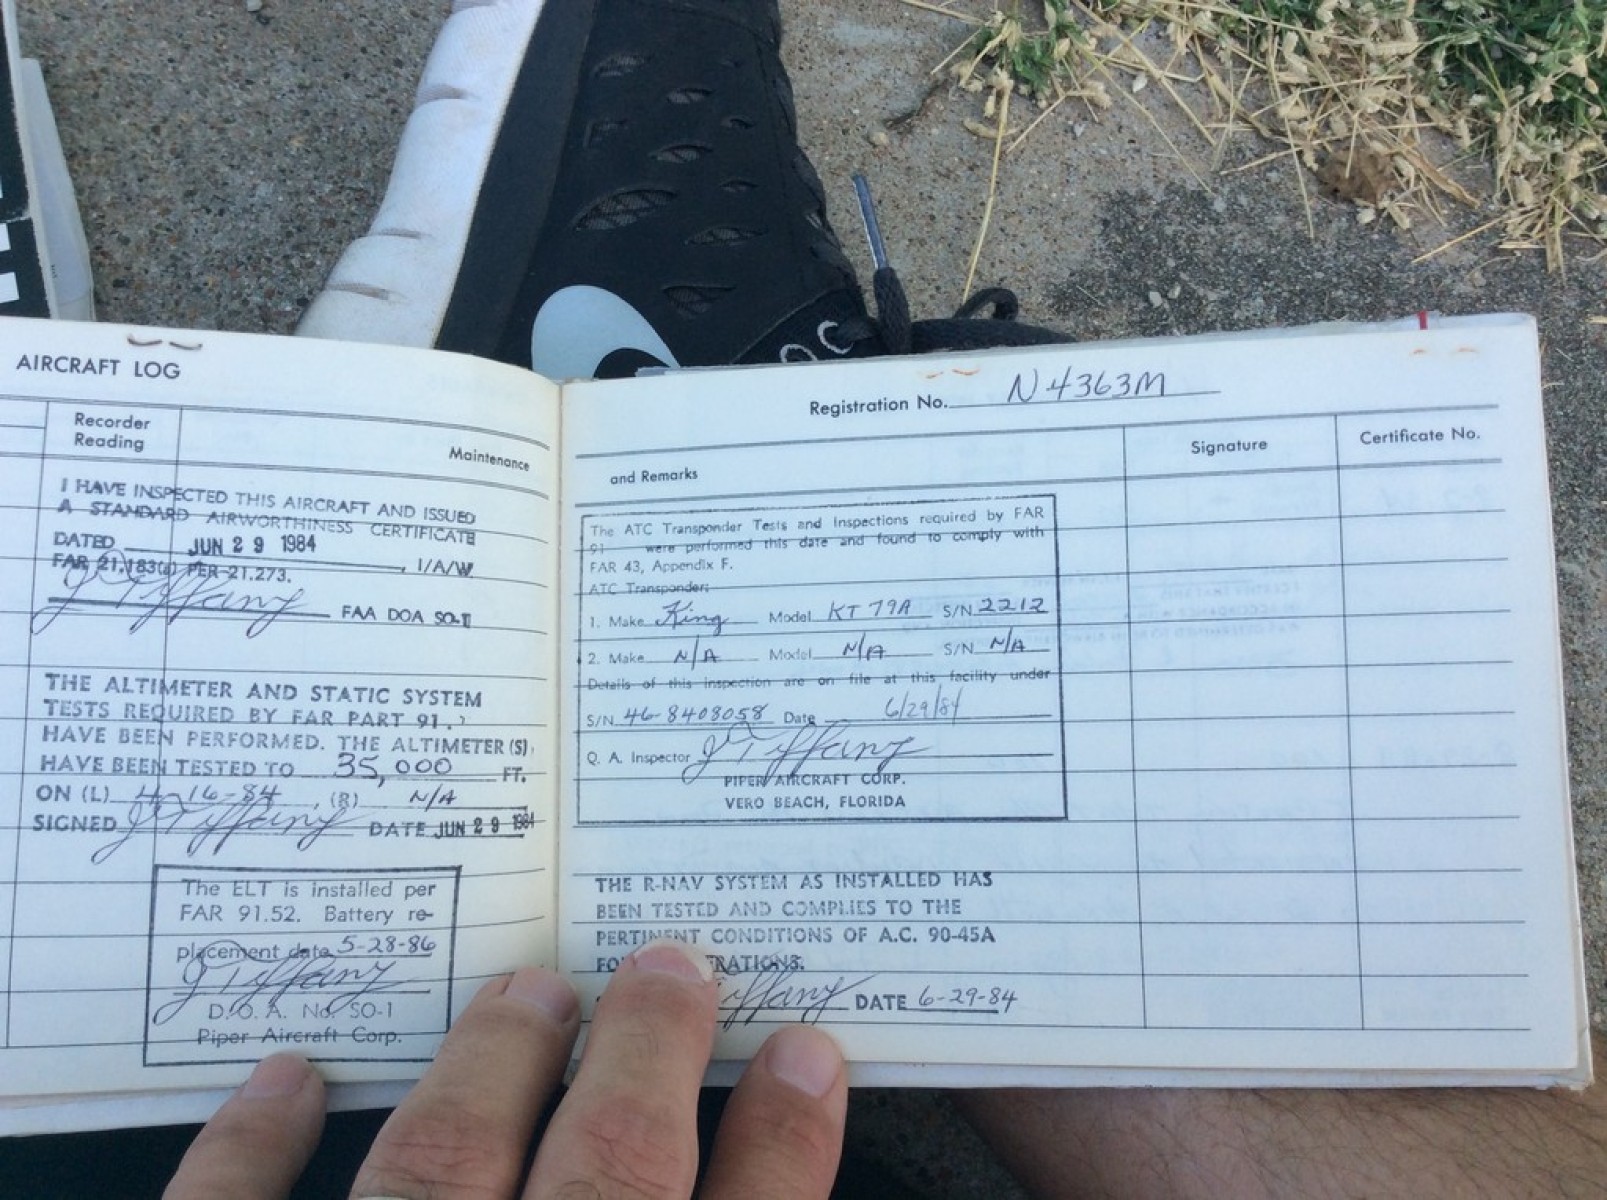 AIRCRAFT LOG
Recorder
Reading
Maintenance
I HAVE INSPECTED THIS AIRCRAFT AND ISSUED
A STANDARD AIRWORTHINESS CERTIFICATE
DATED JUN 29 1984
FAR 21.183(a) PER 21.273. , I/A/W
J Tiffany FAA DOA SO-1
THE ALTIMETER AND STATIC SYSTEM
TESTS REQUIRED BY FAR PART 91.
HAVE BEEN PERFORMED. THE ALTIMETER (S)
HAVE BEEN TESTED TO 35,000 FT.
ON (L) 4-16-84 , (R) N/A
SIGNED J Tiffany DATE JUN 29 1984
The ELT is installed per
FAR 91.52. Battery re-
placement date 5-28-86
J Tiffany
D.O.A. No. SO-1
Piper Aircraft Corp.
Registration No. N4363M
and Remarks
Signature
Certificate No.
The ATC Transponder Tests and Inspections required by FAR
91 were performed this date and found to comply with
FAR 43, Appendix F.
ATC Transponder:
1. Make King Model KT 79A S/N 2212
2. Make N/A Model N/A S/N N/A
Details of this inspection are on file at this facility under
S/N 46-8408058 Date 6/29/84
Q. A. Inspector J Tiffany
PIPER AIRCRAFT CORP.
VERO BEACH, FLORIDA
THE R-NAV SYSTEM AS INSTALLED HAS
BEEN TESTED AND COMPLIES TO THE
PERTINENT CONDITIONS OF A.C. 90-45A
Tiffany DATE 6-29-84